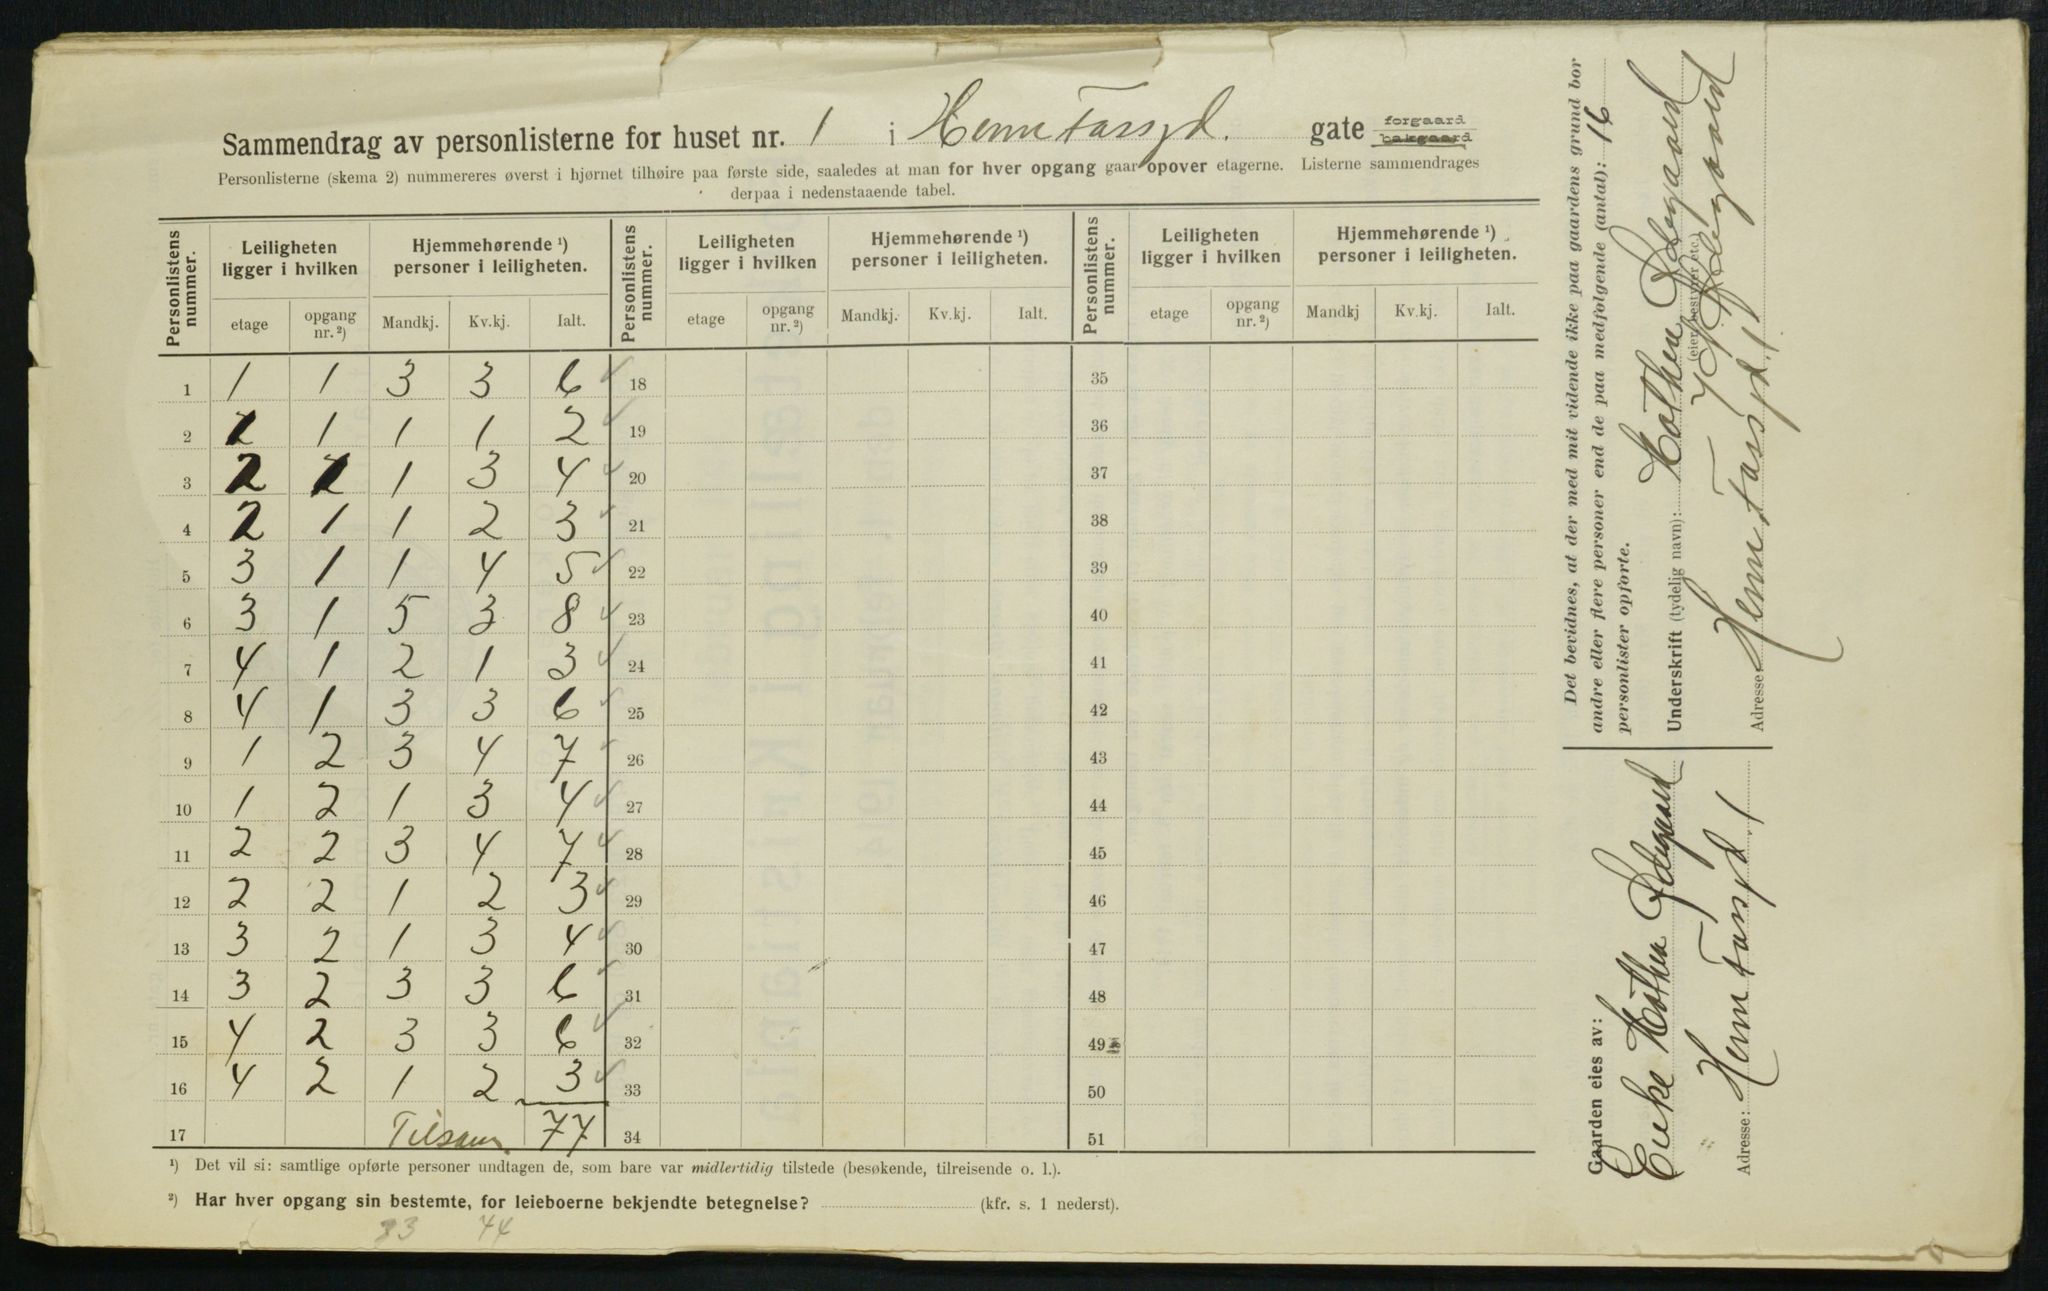 Sammendrag av personlisterne for huset nr. 1 i Herm Fossgd. gate forgaard bakgaard
Personlisterne (skema 2) nummereres øverst i hjørnet tilhøire paa første side, saaledes at man for hver opgang gaar opover etagerne. Listerne sammendrages
derpaa i nedenstaaende tabel.
Personlistens nummer. Leiligheten ligger i hvilken Hjemmehørende ¹) personer i leiligheten. Personlistens nummer. Leiligheten ligger i hvilken Hjemmehørende ¹) personer i leiligheten. Personlistens nummer. Leiligheten ligger i hvilken Hjemmehørende ¹) personer i leiligheten.
etage opgang nr. ²) Mandkj. Kv.kj. Ialt. etage opgang nr. ²) Mandkj. Kv.kj. Ialt. etage opgang nr. ²) Mandkj Kv.kj. Ialt.
1 1 1 3 3 6 18 35
2 1 1 1 1 2 19 36
3 2 1 1 3 4 20 37
4 2 1 1 2 3 21 38
5 3 1 1 4 5 22 39
6 3 1 5 3 8 23 40
7 4 1 2 1 3 24 41
8 4 1 3 3 6 25 42
9 1 2 3 4 7 26 43
10 1 2 1 3 4 27 44
11 2 2 3 4 7 28 45
12 2 2 1 2 3 29 46
13 3 2 1 3 4 30 47
14 3 2 3 3 6 31 48
15 4 2 3 3 6 32 49
16 4 2 1 2 3 33 50
17 Tilsam 77 34 51
¹) Det vil si: samtlige opførte personer undtagen de, som bare var midlertidig tilstede (besøkende, tilreisende o. l.).
²) Har hver opgang sin bestemte, for leieboerne bekjendte betegnelse? (kfr. s. 1 nederst).
33 44
Det bevidnes, at der med mit vidende ikke paa gaardens grund bor
andre eller flere personer end de paa medfølgende (antal): 16
personlister opførte.
Underskrift (tydelig navn): Kathen Ødegaard
(eier, bestyrer etc.)
Ødegaard
Adresse: Herm Fossgd. 1
Gaarden eies av:
Enke Kathen Ødegaard
Adresse: Herm Fossgd 1